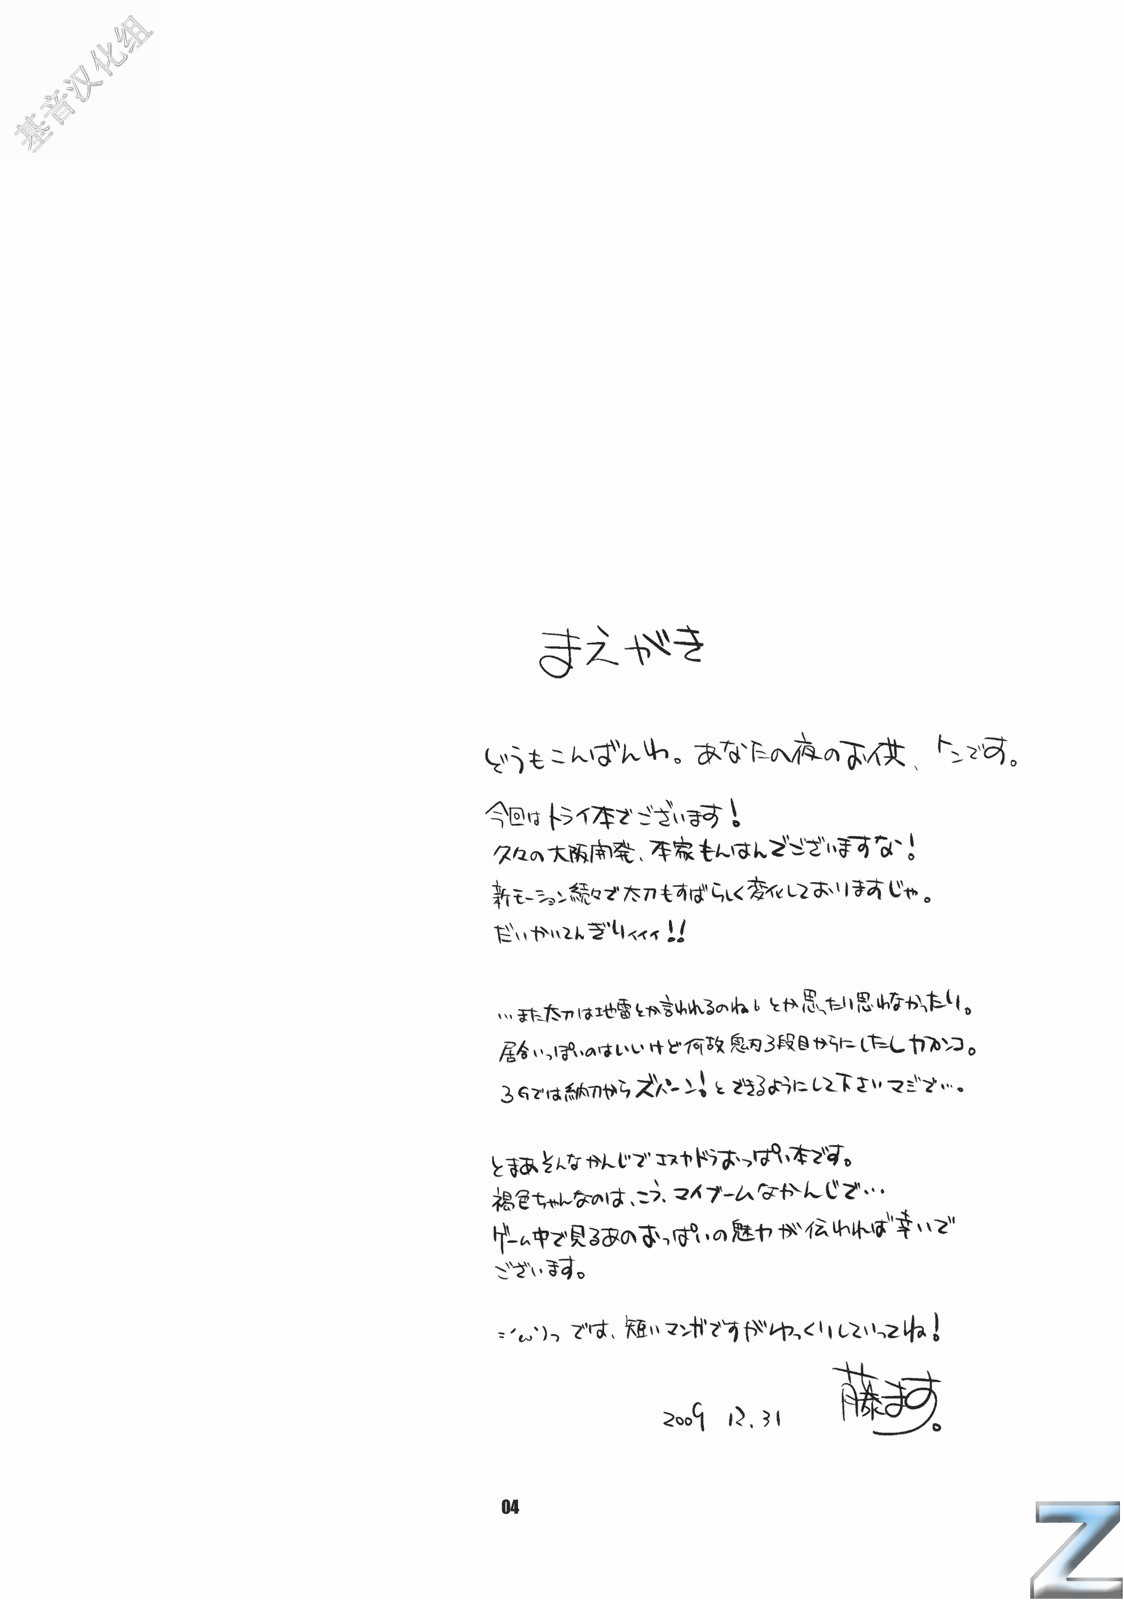 基音汉化组
まえがき
どうもこんばんわ。あなたの夜のお供、トンです。
今回はトライ本でございます！
久々の大阪開発、本家もんはんでございますな！
新モーション続々で太刀もすばらしく変化しておりますじゃ。
だいかいてんぎりィィィ!!
…また太刀は地雷とか言われるのねとか思ったり思わなかったり。
居合いっぽいのはいいけど何故鬼刃3段目からにしたしカプンコ。
3Gでは納刀からズバーン！とできるようにして下さいマジで…。
とまあそんなかんじでエスカドラおっぱい本です。
褐色ちゃんなのは、こう、マイブームなかんじで…
ゲーム中で見るあのおっぱいの魅力が伝われば幸いで
ございます。
では、短いマンガですがゆっくりしていってね！
藤ます。
2009 12.31
04
Z